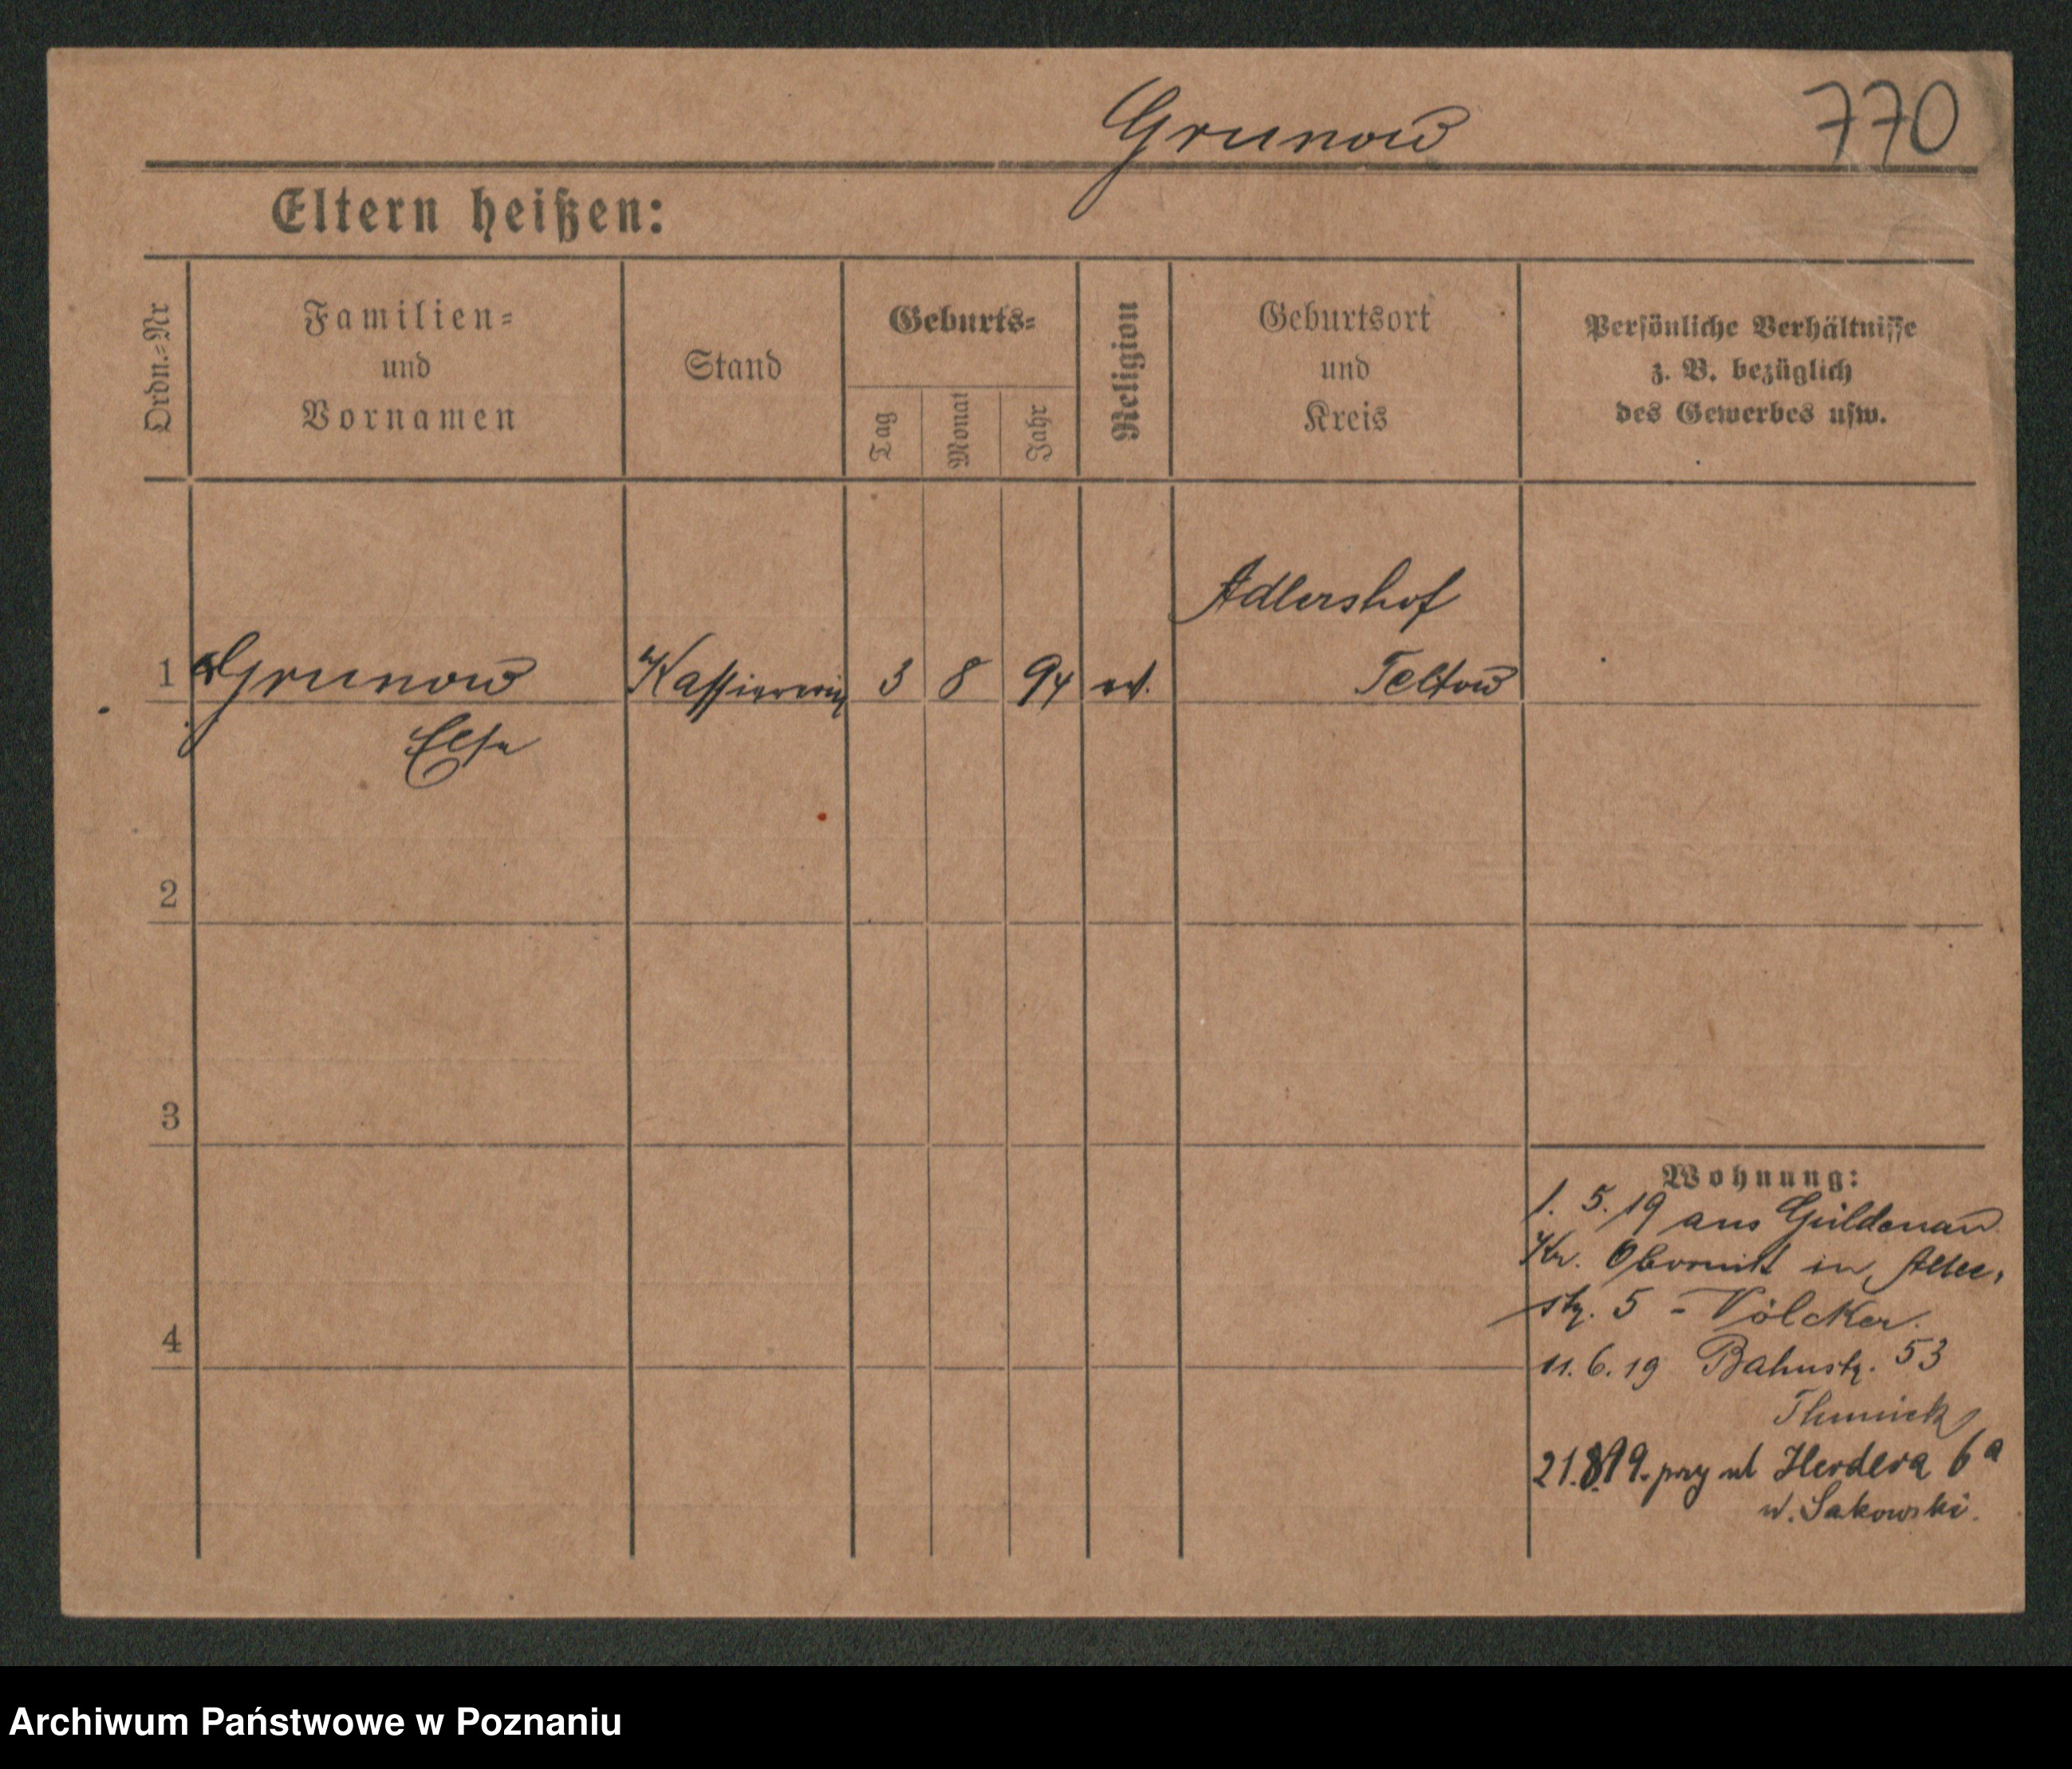 Grunow
770
Eltern heißen:
Ordn.=Nr
Familien=
und
Vornamen
Stand
Geburts=
Tag
Monat
Jahr
Religion
Geburtsort
und
Kreis
Persönliche Verhältnisse
z. B. bezüglich
des Gewerbes usw.
Adlershof
1 Grunow Kassiererin 3 8 94 ev. Teltow
Else
2
3
Wohnung:
1. 5. 19 aus Güldenau
Kr. Obornik in Allee,
4
str. 5 - Völcker.
11. 6. 19 Bahnstr. 53
21.8.19. przy ul Herdera 6a
w. Sakowski.
Archiwum Państwowe w Poznaniu